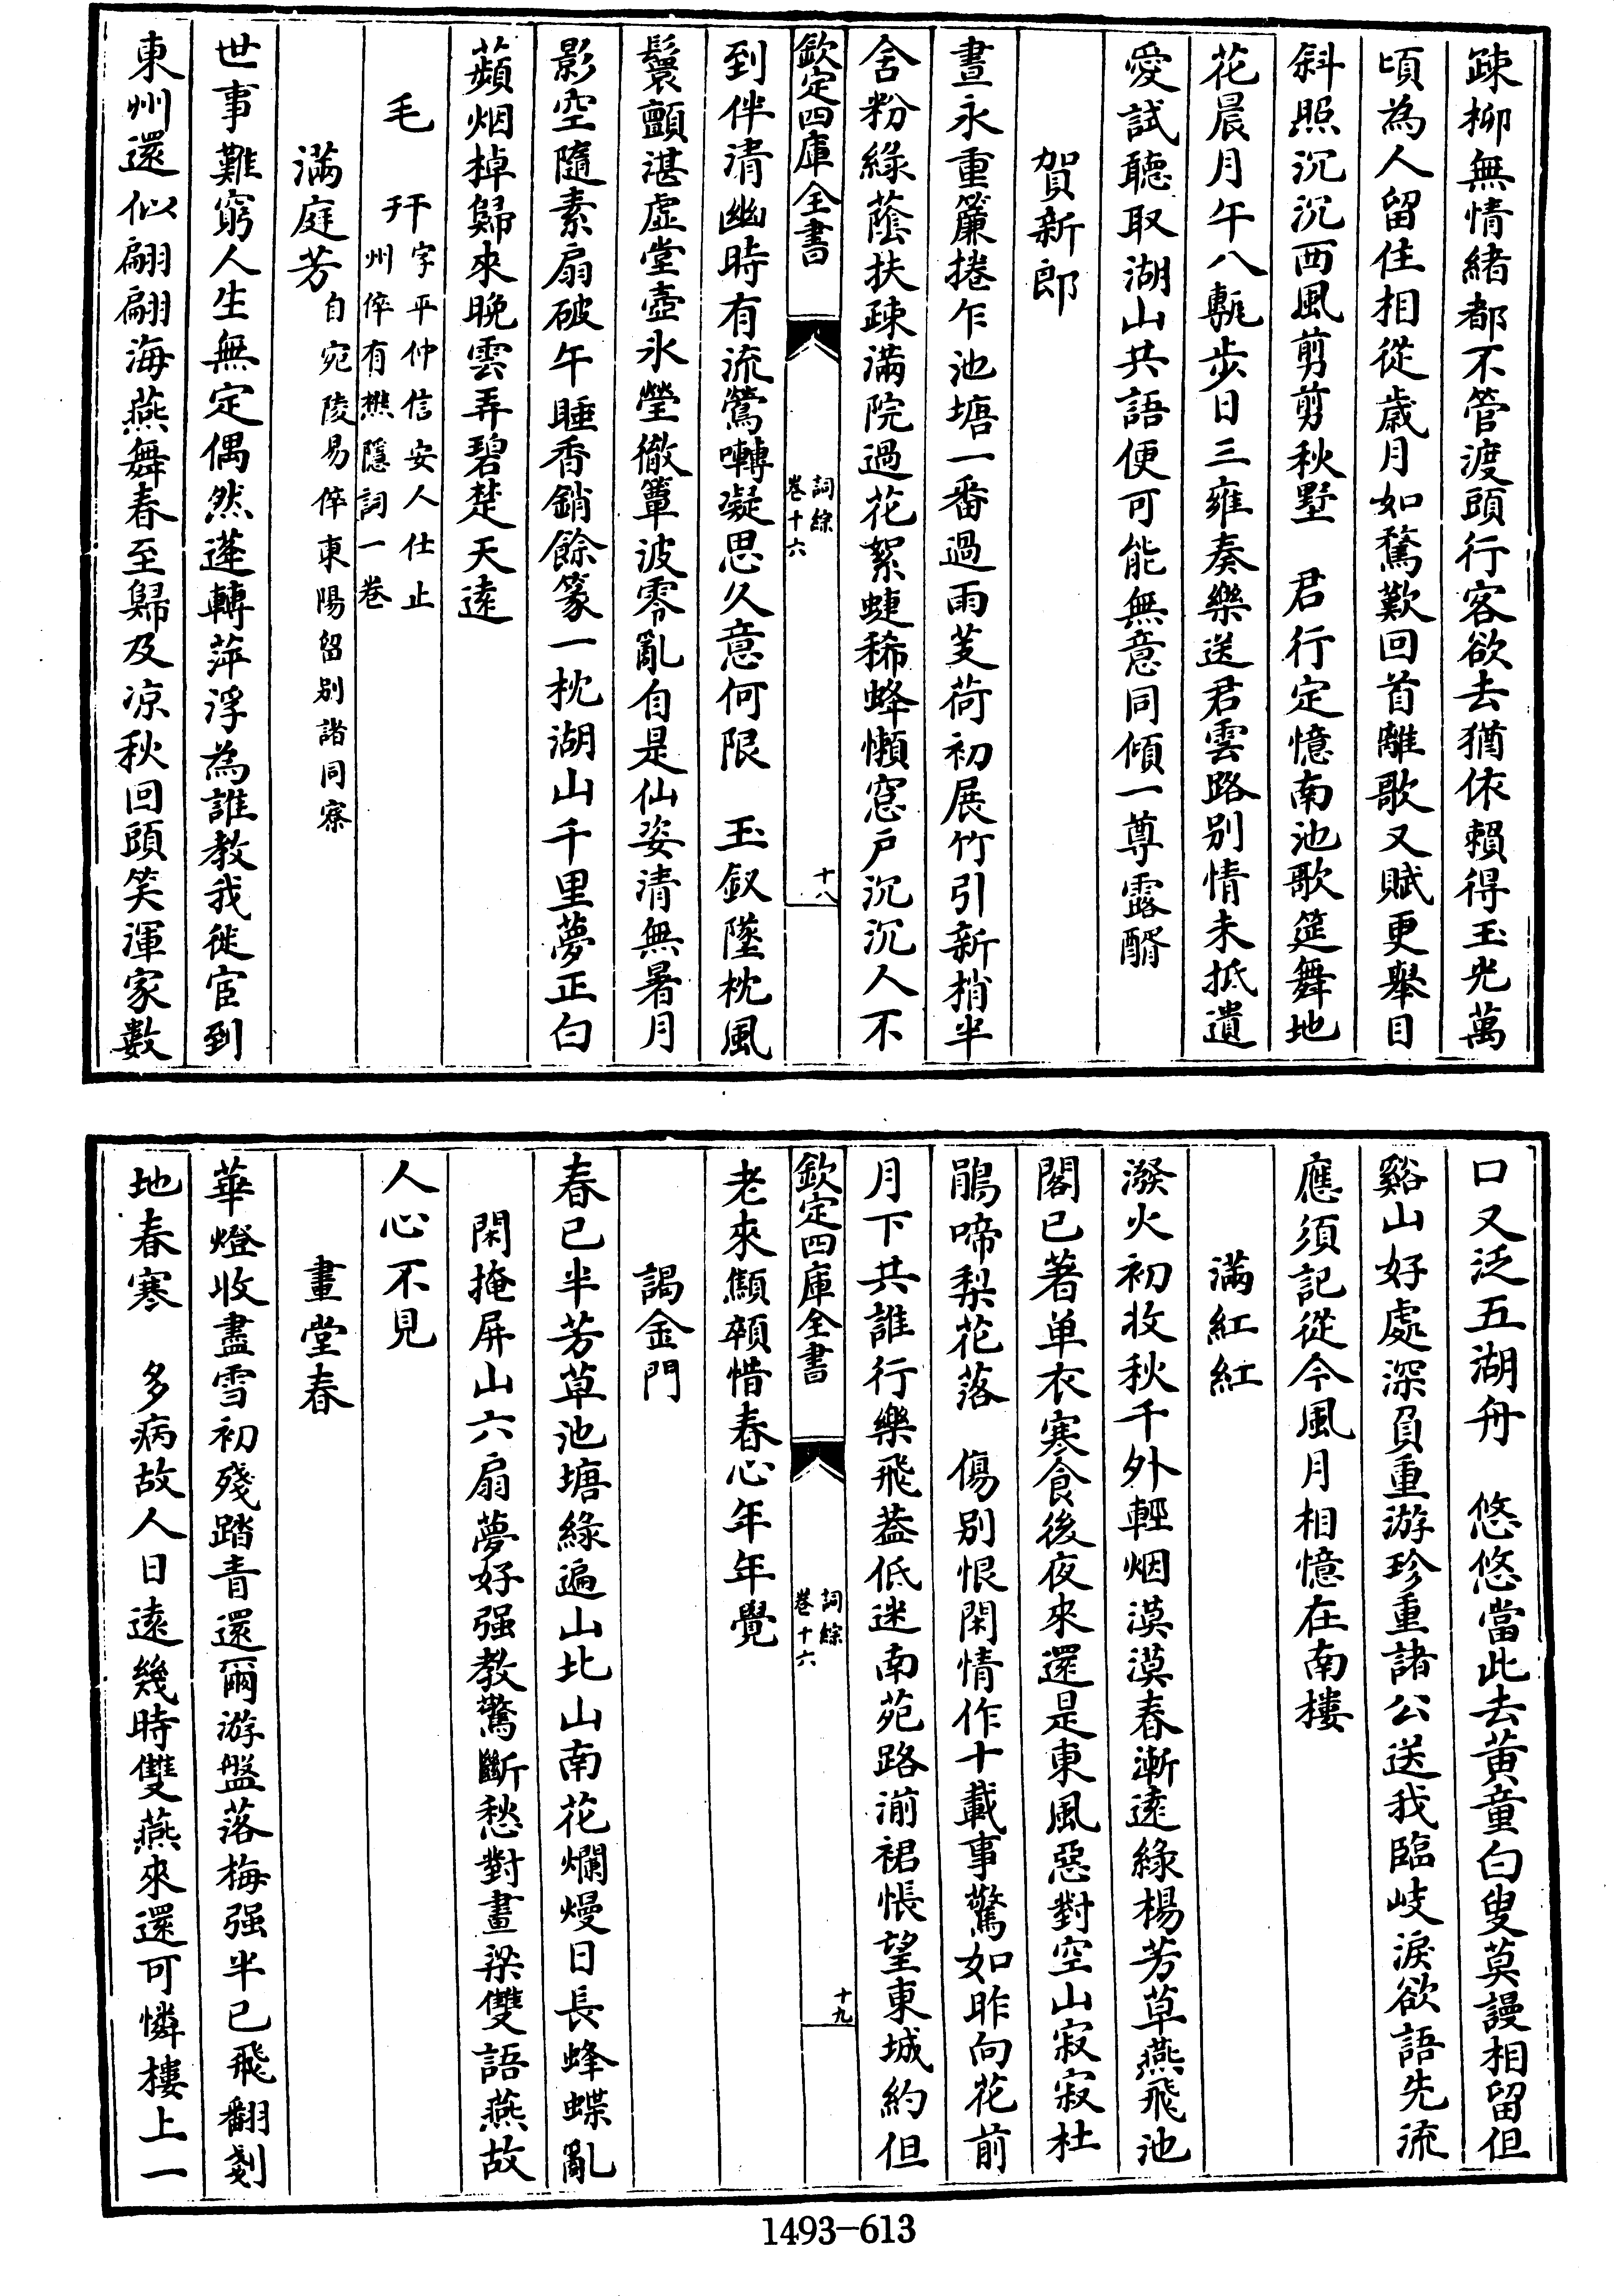 疎柳無情緒都不管渡頭行客欲去猶依賴得玉光萬
頃為人留住相從歲月如驁歎回首離歌又賦更舉目
斜照沉沉西風剪剪秋墅　君行定憶南池歌筵舞地
花晨月午八甎步日三雍奏樂送君雲路別情未抵遺
愛試聽取湖山共語便可能無意同傾一尊露醑
賀新郎
晝永重簾捲乍池塘一番過雨芰荷初展竹引新梢半
含粉綠蔭扶疎滿院過花絮蜨稀蜂懶窓戶沉沉人不
欽定四庫全書
詞綜
卷十六
十八
到伴清幽時有流鶯囀凝思久意何限　玉釵墜枕風
鬟顫湛虛堂壺氷瑩徹簟波零亂自是仙姿清無暑月
影空隨素扇破午睡香銷餘篆一枕湖山千里夢正白
蘋烟棹歸來晚雲弄碧楚天遠
毛　幵字平仲信安人仕止
州倅有樵隱詞一卷
滿庭芳自宛陵易倅東陽留別諸同寮
世事難窮人生無定偶然蓬轉萍浮為誰教我從宦到
東州還似翩翩海燕舞春至歸及凉秋回頭笑渾家數
口又泛五湖舟　悠悠當此去黃童白叟莫謾相留但
谿山好處深負重游珍重諸公送我臨岐淚欲語先流
應須記從今風月相憶在南樓
滿紅紅
潑火初收秋千外輕烟漠漠春漸遠綠楊芳草燕飛池
閣已著单衣寒食後夜來還是東風惡對空山寂寂杜
鵑啼梨花落　傷別恨閑情作十載事驚如昨向花前
月下共誰行樂飛葢低迷南苑路湔裙悵望東城約但
欽定四庫全書
詞綜
卷十六
十九
老來顦顇惜春心年年覺
謁金門
春已半芳草池塘綠遍山北山南花爛熳日長蜂蝶亂
　閑掩屏山六扇夢好强教驚斷愁對畫梁雙語燕故
人心不見
畫堂春
華燈收盡雪初殘踏青還爾游盤落梅强半已飛翻剗
地春寒　多病故人日遠幾時雙燕來還可憐樓上一
1493-613